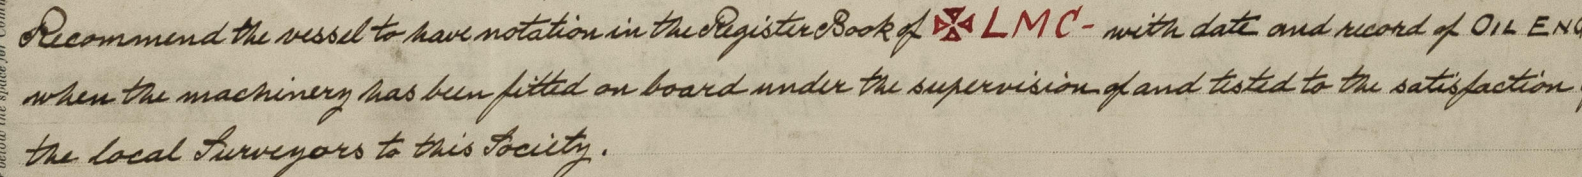 Recommend the vessel to have notation in the Register Book of ✠ LMC - with date and record of OIL ENG
when the machinery has been fitted on board under the supervision of and tested to the satisfaction
the local Surveyors to this Society.